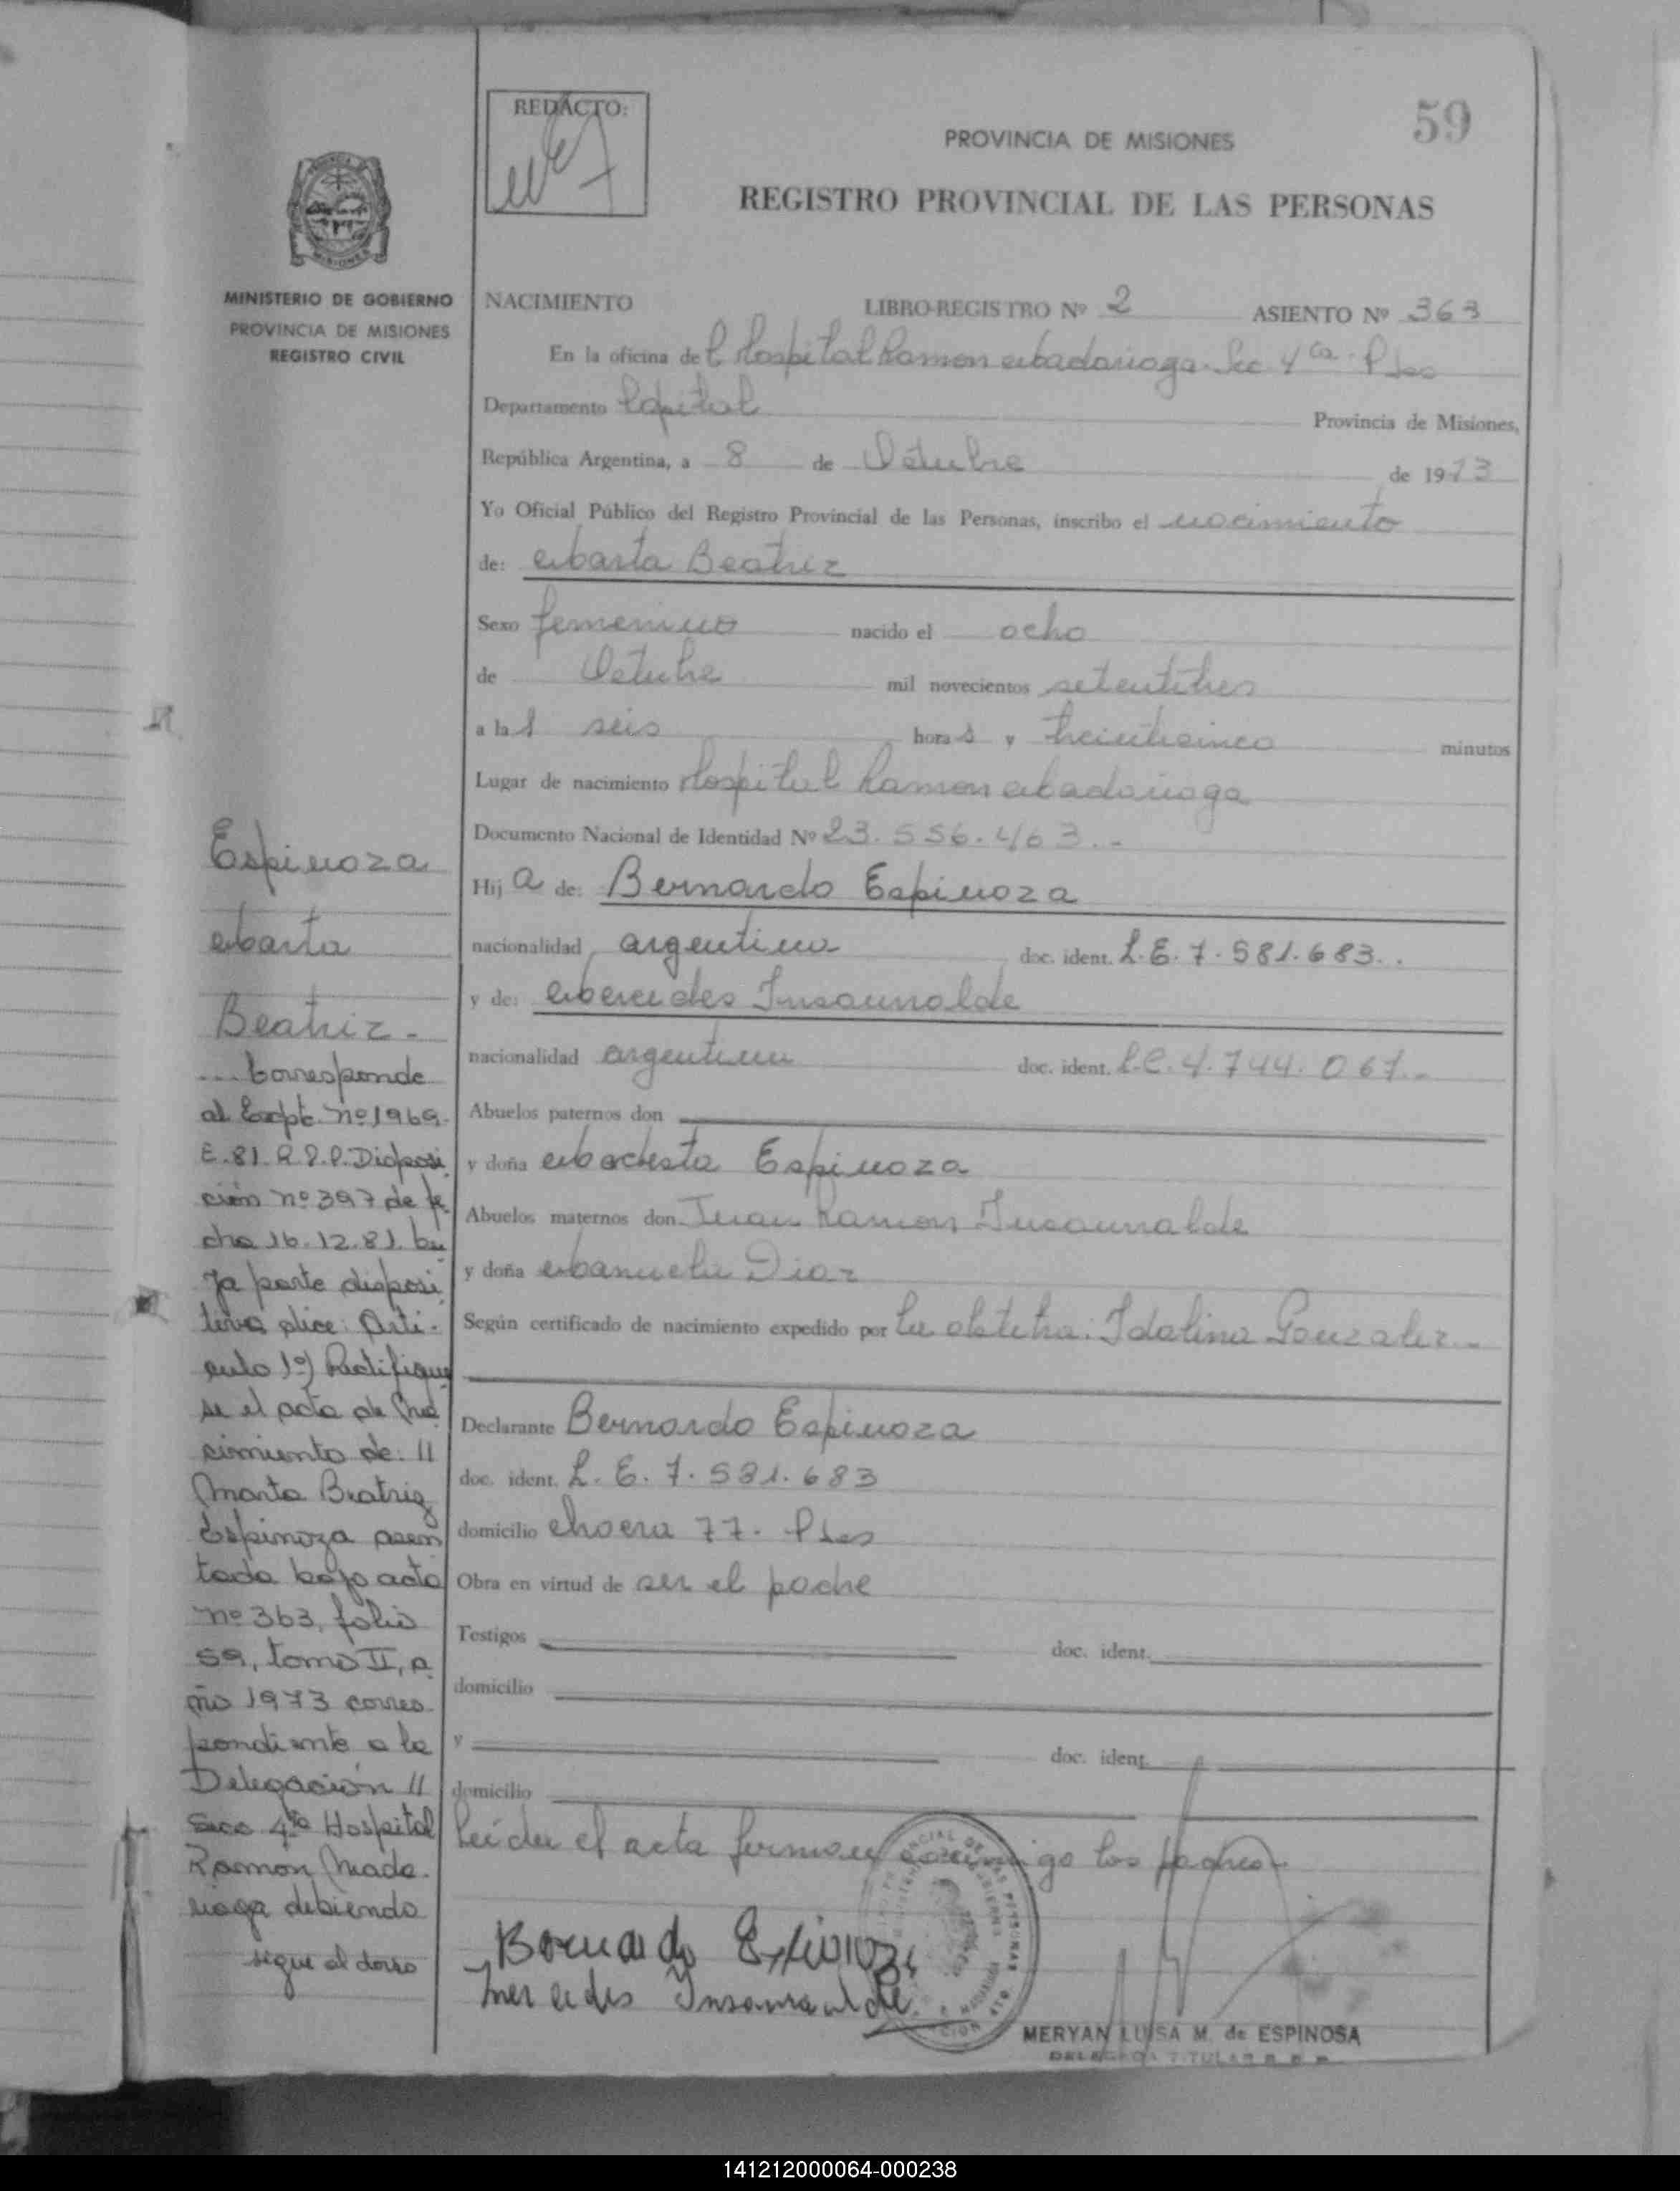 59
REDACTO:
PROVINCIA DE MISIONES
REGISTRO PROVINCIAL DE LAS PERSONAS
MINISTERIO DE GOBIERNO
PROVINCIA DE MISIONES
REGISTRO CIVIL
NACIMIENTO LIBRO-REGISTRO Nº 2 ASIENTO Nº 363
En la oficina del Hospital Ramon Madariaga Sec 4ta Pdas
Departamento Capital Provincia de Misiones,
República Argentina, a 8 de Octubre de 1973
Yo Oficial Público del Registro Provincial de las Personas, inscribo el nacimiento
de: Marta Beatriz
Sexo femenino nacido el ocho
de Octubre mil novecientos setentitres
a las seis horas y treinticinco minutos
Lugar de nacimiento Hospital Ramon Madariaga
Documento Nacional de Identidad Nº 23.556.463.-
Hija de: Bernardo Espinoza
nacionalidad argentina doc. ident. L.E. 7.581.683..
y de: Mercedes Insaurralde
nacionalidad argentina doc. ident. L.C. 4.744.067.-
Abuelos paternos don
y doña Modesta Espinoza
Abuelos maternos don Juan Ramon Insaurralde
y doña Manuela Diaz
Según certificado de nacimiento expedido por la obstetra: Idalina Gonzalez.-
Declarante Bernardo Espinoza
doc. ident. L.E. 7.581.683
domicilio Chacra 77. Pdas
Obra en virtud de ser el padre
Testigos doc. ident.
domicilio
y doc. ident.
domicilio
Leida el acta firman conmigo los padres.-
Bernardo Espinoza
Mercedes Insaurralde
MERYAN LUISA M. de ESPINOSA
DELEGADA TITULAR R. P. P.
Espinoza
Marta
Beatriz -
... Corresponde
al Expte. Nº 1969.
E-81. R.P.P. Disposi
ción Nº 397 de fe
cha 16.12.81. Cu
ya parte disposi
tiva dice: Arti-
culo 1º) Rectifique
se el acta de Na
cimiento de: //
Marta Beatriz
Espinoza asen
tada bajo acta
Nº 363, folio
59, tomo II, a
ño 1973 corres
pondiente a la
Delegación //
Secc 4ta Hospital
Ramón Mada
riaga debiendo
sigue al dorso
141212000064-000238